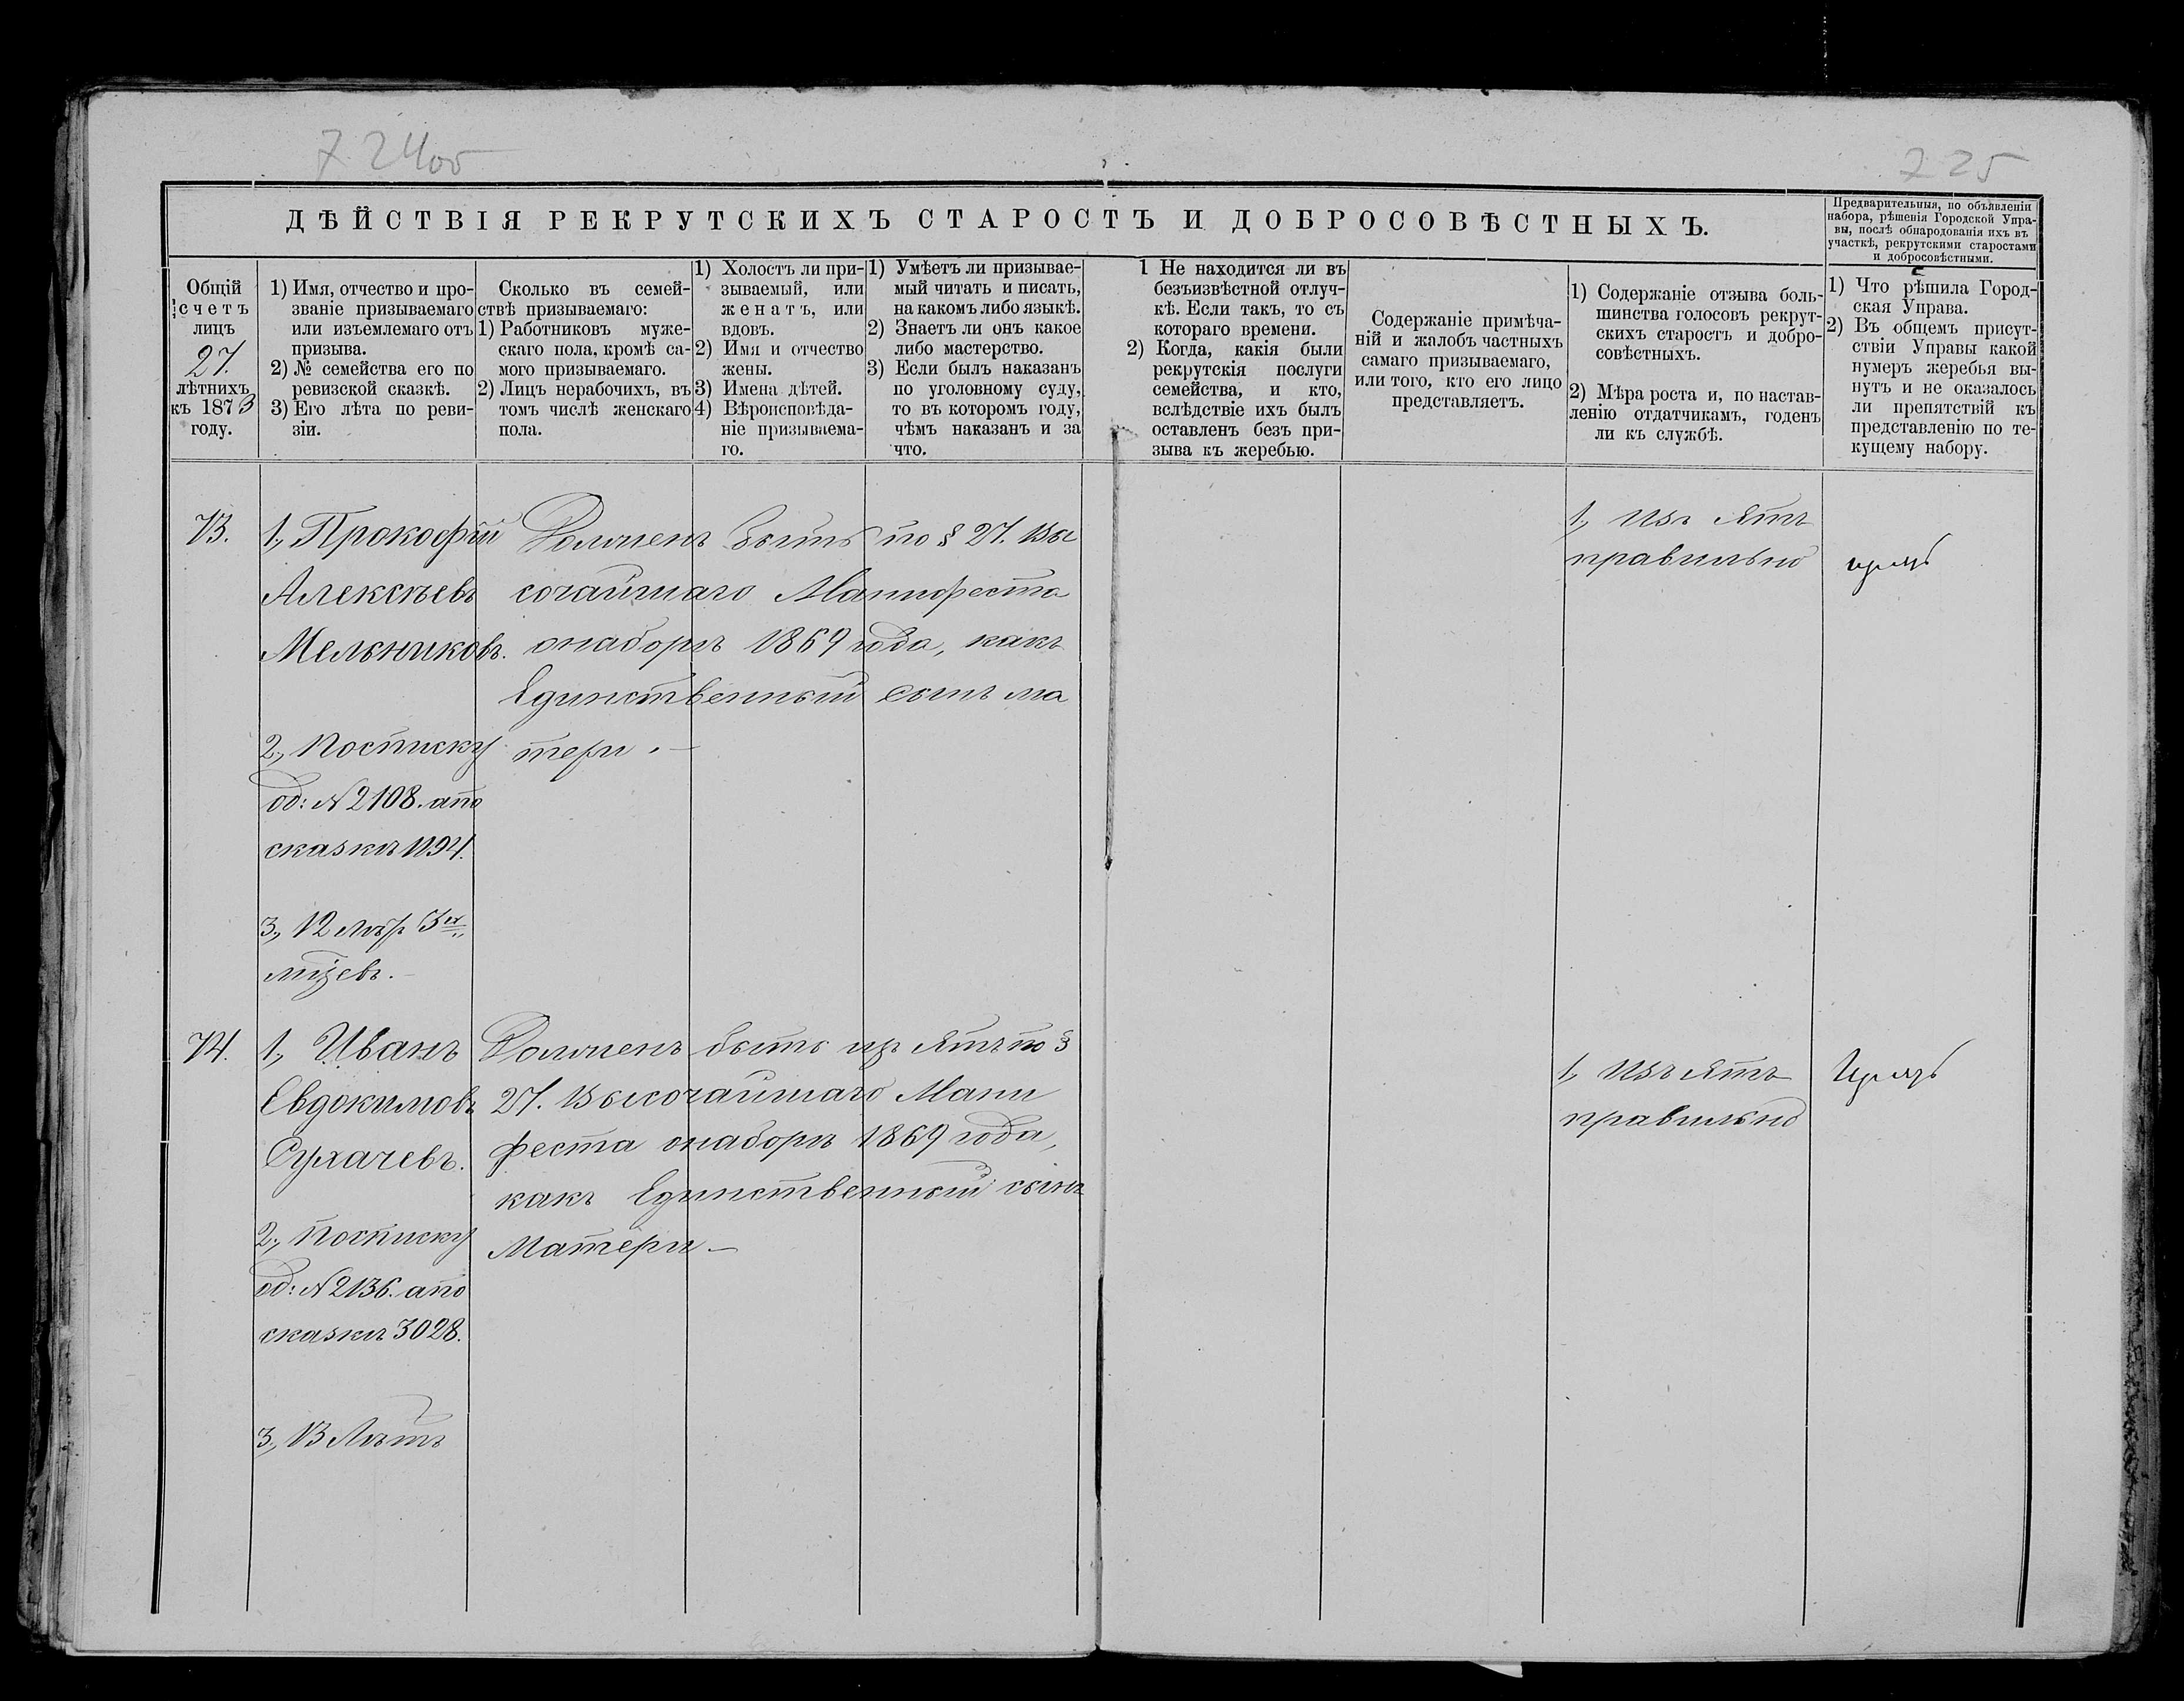 724об
225
ДѢЙСТВІЯ РЕКРУТСКИХЪ СТАРОСТЪ И ДОБРОСОВѢСТНЫХЪ.
Предварительныя, по объявленіи
набора, рѣшенія Городской Упра-
вы, послѣ обнародованія ихъ въ
участкѣ, рекрутскими старостами
и добросовѣстными.
Общій
счетъ
лицъ
27.
лѣтнихъ
къ 1873
году.
1) Имя, отчество и про-
званіе призываемаго
или изъемлемаго отъ
призыва.
2) № семейства его по
ревизской сказкѣ.
3) Его лѣта по реви-
зіи.
Сколько въ семей-
ствѣ призываемаго:
1) Работниковъ муже-
скаго пола, кромѣ са-
мого призываемаго.
2) Лицъ нерабочихъ, въ
томъ числѣ женскаго
пола.
1) Холостъ ли при-
зываемый, или
женатъ, или
вдовъ.
2) Имя и отчество
жены.
3) Имена дѣтей.
4) Вѣроисповѣда-
ніе призываема-
го.
1) Умѣетъ ли призывае-
мый читать и писать,
на какомъ либо языкѣ.
2) Знаетъ ли онъ какое
либо мастерство.
3) Если былъ наказанъ
по уголовному суду,
то въ которомъ году,
чѣмъ наказанъ и за
что.
1 Не находится ли въ
безъизвѣстной отлуч-
кѣ. Если такъ, то съ
котораго времени.
2) Когда, какія были
рекрутскія послуги
семейства, и кто,
вслѣдствіе ихъ былъ
оставленъ безъ при-
зыва къ жеребью.
Содержаніе примѣча-
ній и жалобъ частныхъ
самаго призываемаго,
или того, кто его лицо
представляетъ.
1) Содержаніе отзыва боль-
шинства голосовъ рекрут-
скихъ старостъ и добро-
совѣстныхъ.
2) Мѣра роста и, по настав-
ленію отдатчикамъ, годенъ
ли къ службѣ.
1) Что рѣшила Город-
ская Управа.
2) Въ общемъ присут-
ствіи Управы какой
нумеръ жеребья вы-
нутъ и не оказалось
ли препятствій къ
представленію по те-
кущему набору.
13.
1., Прокофій
Алексѣевъ
Мельниковъ.
2., Посписку
од: №2108. апо
сказкѣ 1194.
3., 12 лѣт. 3ех
мцевъ.
Долженъ быть по § 27. Вы
сочайшаго Манифеста
онаборѣ 1869 года, какъ
Единственный сынъ ма
тери.
1., Изъ ятъ
правильно
14.
1., Иванъ
Евдокимовъ
Сухачевъ.
2., Посписку
од: №2136. апо
сказкѣ 3028.
3., 13 Лѣтъ
Долженъ быть изъ ятъ по §
27. Высочайшаго Мани
феста онаборѣ 1869 года,
какъ Единственный сынъ
Матери
1., Изъ ятъ
правильно